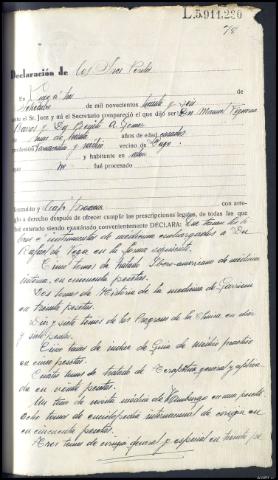 L.5.911.230
78
Declaración de los Tres Peritos
En Lugo a los
de mil novecientos treinta y seis
ante el Sr. Juez y mi el Secretario compareció el que dijo ser Don Manuel
y D. A. Gomez
de años de edad, casados
profesión y vecino de Lugo
y habitante en
no fué procesado
instruído y
con arreglo
a derecho después de ofrecer cumplir las prescripciones legales, de todas las que
fué enterado siendo examinado convenientemente DECLARA: Que
e instrumentos de medicina embargados a Don
Rafael de Vega en la forma siguiente:
Cinco tomos de tratado Ibero-americano de medicina
interna, en cincuenta pesetas.
Dos tomos de Historia de la medicina de Garrison
en treinta pesetas.
Diez y siete tomos de los Progresos de la Clinica en diez
y siete pesetas.
Cinco tomos de Guia de médico práctico
en cinco pesetas.
Cuatro tomos de tratado de Terapéutica general y aplicada
en veinte pesetas.
Un tomo de revista médica de Hamburgo en una peseta
Ocho tomos de enciclopedia internacional de cirugia en
en cincuenta pesetas.
Tres tomos de cirugia general y especial en treinta pe